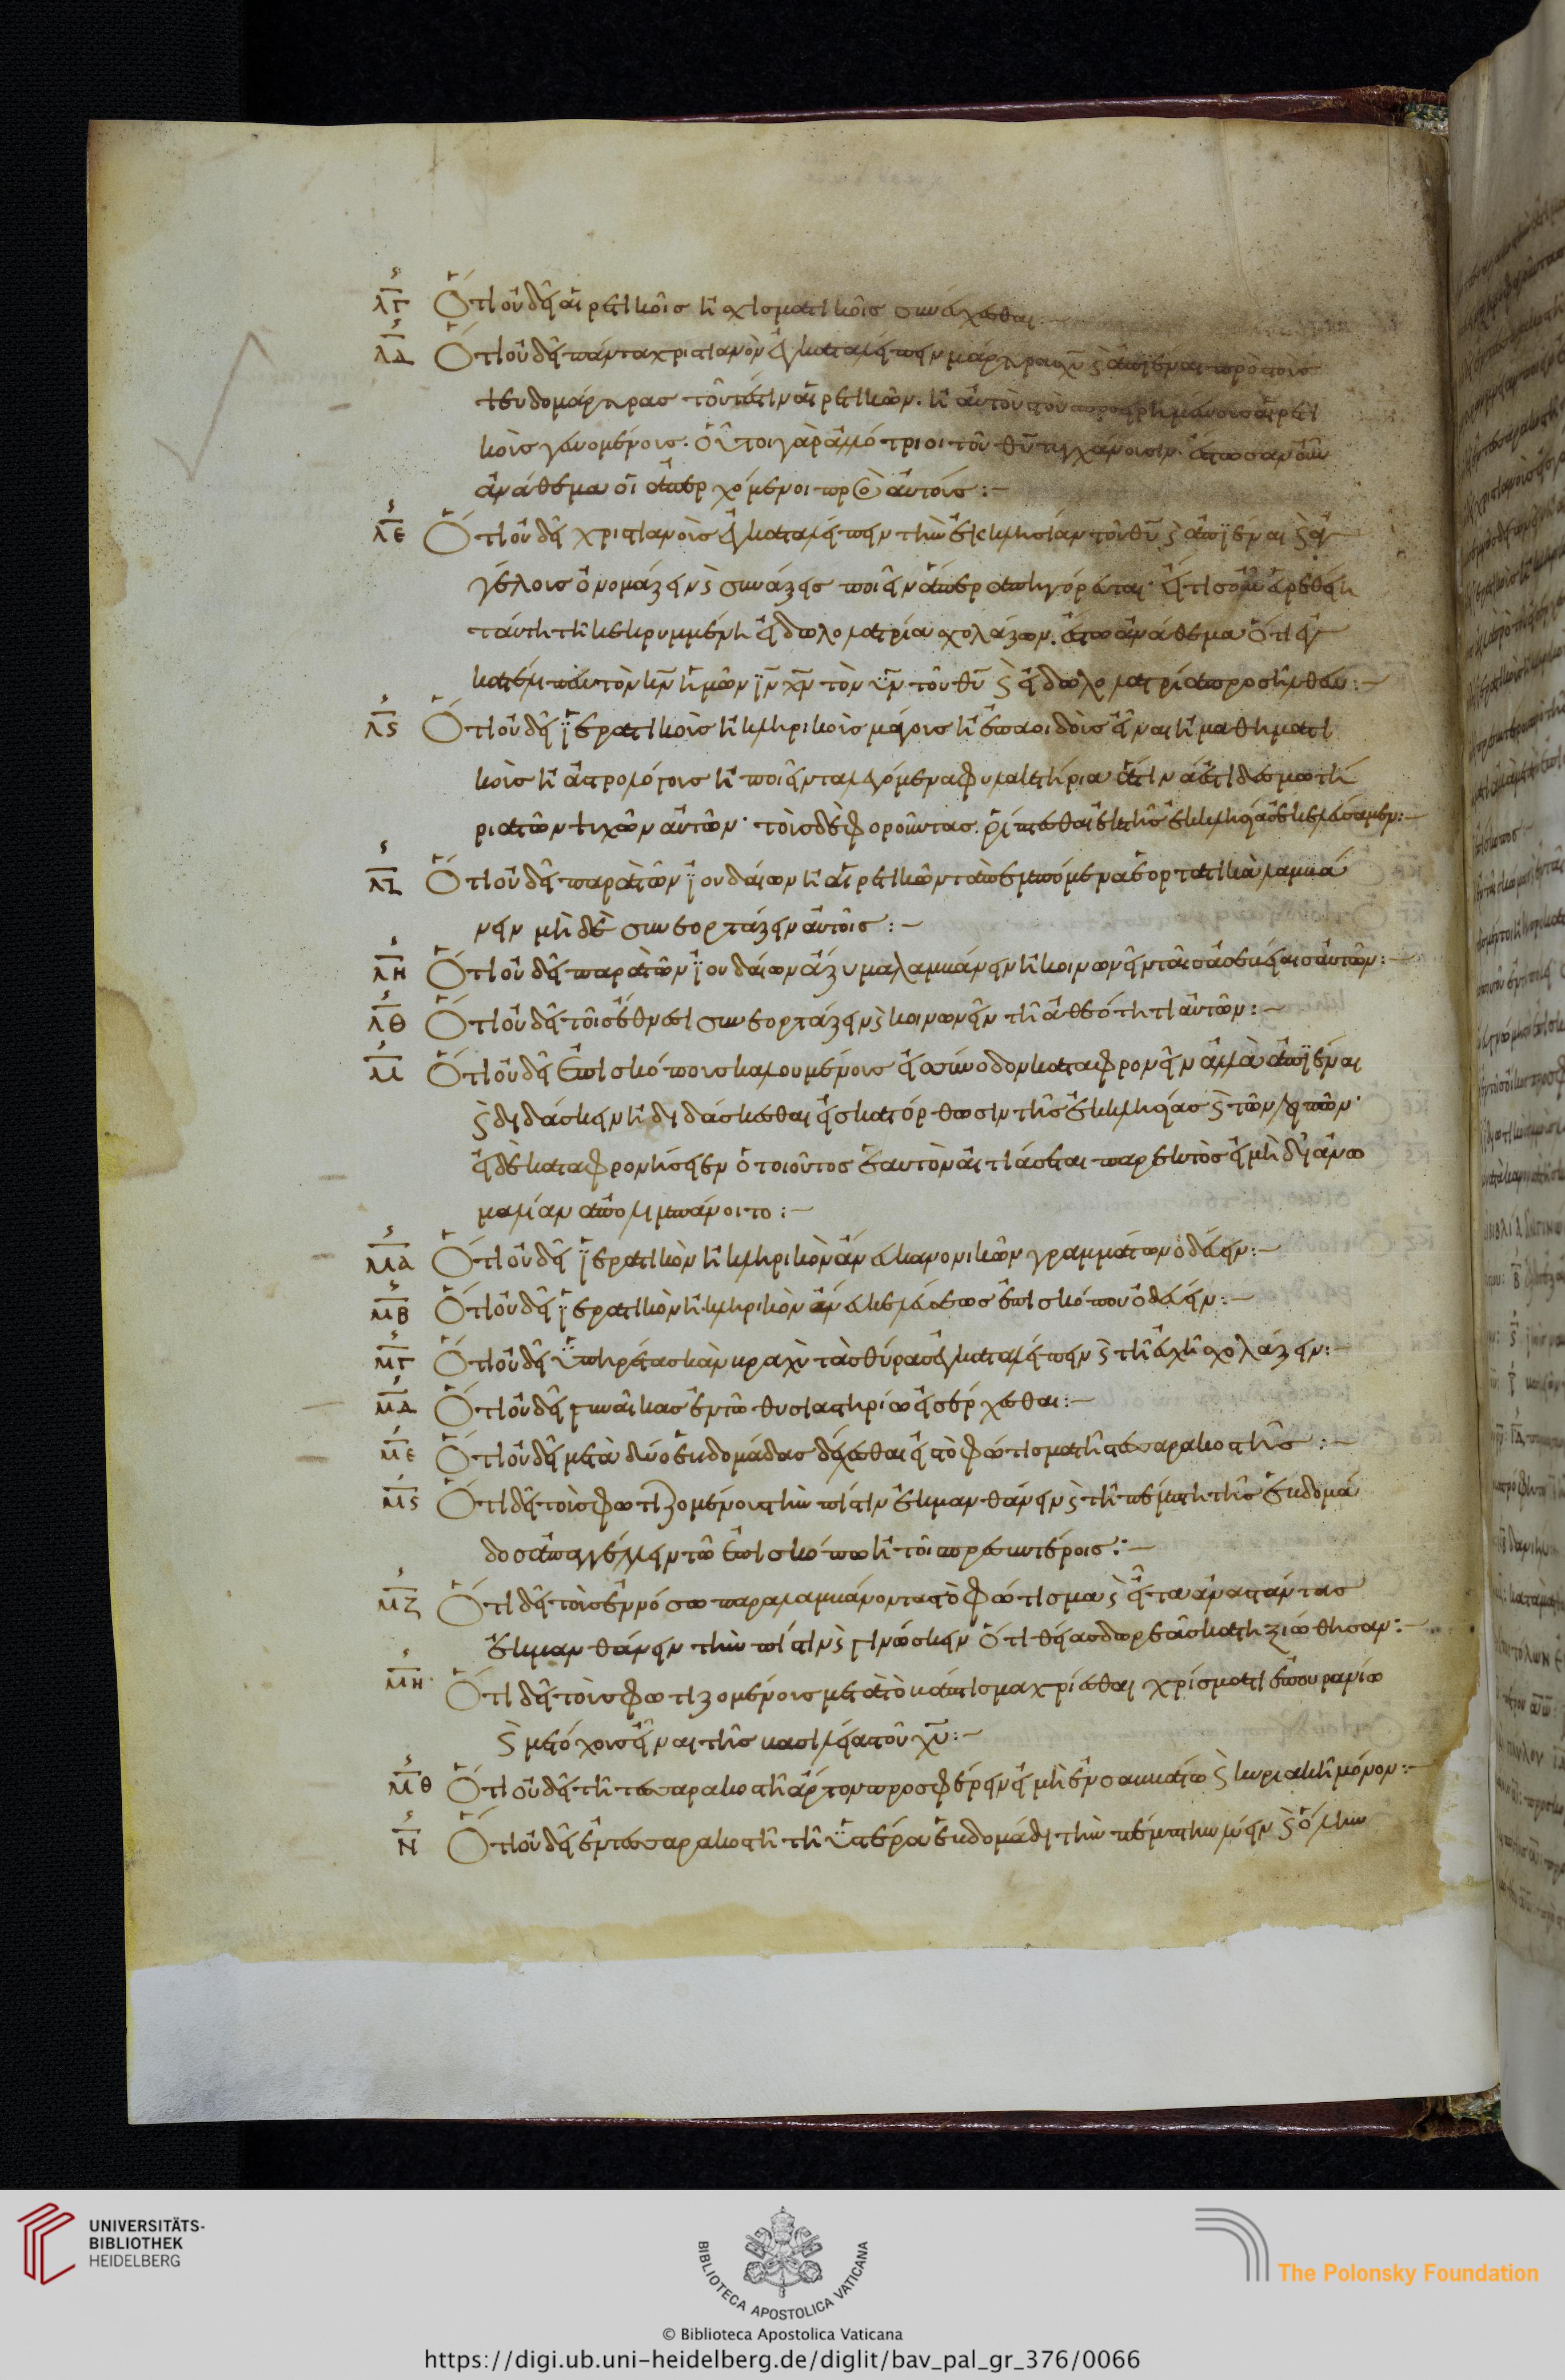 λγ Ὅτι οὐ δεῖ αἱρετικοῖς ἢ σχισματικοῖς συνεύχεσθαι:
λδ Ὅτι οὐ δεῖ πάντα χριστιανὸν ἐγκαταλείπειν μάρτυρας χυ καὶ ἀπϊέναι πρὸς τοὺς
ψευδομάρτυρας τουτέστιν αἱρετικῶν. ἢ αὐτοὺς τοὺς προειρημένους αἱρετι
κοὺς γενομένους. οὗτοι γὰρ ἀλλότριοι τοῦ θυ τυγχάνουσιν. ἔστωσαν οὖν
ἀνάθεμα οἱ ἀπερχόμενοι πρὸς αὐτούς:
λε Ὅτι οὐ δεῖ χριστιανοὺς ἐγκαταλείπειν τὴν ἐκκλησίαν τοῦ θυ καὶ ἀπϊέναι καὶ ἀγ
γέλους ὀνομάζειν καὶ συνάξεις ποιεῖν ἅπερ ἀπηγόρευται. εἴ τις οὖν εὑρεθείη
ταύτη τῆ κεκρυμμένη εἰδωλολατρία σχολάζων. ἔστω ἀνάθεμα ὅτι ἐγ
κατέλιπε τὸν κν ἡμῶν ϊν χν τὸν υν τοῦ θυ καὶ εἰδωλολατρία προσῆλθεν:
λς Ὅτι οὐ δεῖ ϊερατικοὺς ἢ κληρικοὺς μάγους ἢ ἐπαοιδοὺς εἶναι ἢ μαθηματι
κοὺς ἢ ἀστρολόγους ἢ ποιεῖν τὰ λεγόμενα φυλακτήρια ἅτινά ἐστι δεσμωτή
ρια τῶν ψυχῶν αὐτῶν. τοὺς δὲ φοροῦντας. ῥίπτεσθαι ἐκ τῆς ἐκκλησίας ἐκελεύσαμεν:
λζ Ὅτι οὐ δεῖ παρὰ τῶν ϊουδαίων ἢ αἱρετικῶν τὰ πεμπόμενα ἑορταστικὰ λαμβά
νειν μὴ δὲ συνεορτάζειν αὐτοῖς:
λη Ὅτι οὐ δεῖ παρὰ τῶν ϊουδαίων ἄζυμα λαμβάνειν ἢ κοινωνεῖν ταῖς ἀσεβείαις αὐτῶν:
λθ Ὅτι οὐ δεῖ τοῖς ἔθνεσι συνεορτάζειν καὶ κοινωνεῖν τῆ ἀθεότητι αὐτῶν:
μ Ὅτι οὐ δεῖ ἐπισκόπους καλουμένους εἰς σύνοδον καταφρονεῖν ἀλλὰ ἀπϊέναι
καὶ διδάσκειν ἢ διδάσκεσθαι εἰς κατόρθωσιν τῆς ἐκκλησίας καὶ τῶν λοιπῶν.
εἰ δὲ καταφρονήσειεν ὁ τοιοῦτος ἑαυτὸν αἰτιάσεται παρεκτὸς εἰ μὴ δι' ἀνω
μαλίαν ἀπολιμπάνοιτο:
μα Ὅτι οὐ δεῖ ϊερατικὸν ἢ κληρικὸν ἄνευ κανονικῶν γραμμάτων ὁδεύειν:
μβ Ὅτι οὐ δεῖ ϊερατικὸν ἢ κληρικὸν ἄνευ κελεύσεως ἐπισκόπου ὁδεύειν:
μγ Ὅτι οὐ δεῖ ὑπηρέτας κἂν βραχὺ τὰς θύρας ἐγκαταλείπειν καὶ τῆ εὐχῆ σχολάζειν:
μδ Ὅτι οὐ δεῖ γυναῖκας ἐν τῶ θυσιαστηρίω εἰσέρχεσθαι:
με Ὅτι οὐ δεῖ μετὰ δύο ἑβδομάδας δέχεσθαι εἰς τὸ φώτισμα τῆς τεσσαρακοστῆς:
μς Ὅτι δεῖ τοὺς φωτιζομένους τὴν πίστιν ἐκμανθάνειν καὶ τῆ πέμπτη τῆς ἑβδομά
δος ἀπαγγέλλειν τῶ ἐπισκόπω ἢ τοῖς πρεσβυτέροις:
μζ Ὅτι δεῖ τοὺς ἐν νόσω παραλαμβάνοντας τὸ φώτισμα καὶ εἶτα ἀναστάντας
ἐκμανθάνειν τὴν πίστιν καὶ γινώσκειν ὅτι θείας δωρεᾶς κατηξιώθησαν:
μη Ὅτι δεῖ τοὺς φωτιζομένους μετὰ τὸ βάπτισμα χρίεσθαι χρίσματι ἐπουρανίω
καὶ μετόχους εἶναι τῆς βασιλείας τοῦ χυ:
μθ Ὅτι οὐ δεῖ τῆ τεσσαρακοστῆ ἄρτον προσφέρειν εἰ μὴ ἐν σαββάτω καὶ κυριακῆ μόνον:
ν Ὅτι οὐ δεῖ ἐν τεσσαρακοστῆ τῆ ὑστέρα ἑβδομάδι τὴν πέμπτην λύειν καὶ ὅλην
UNIVERSITÄTS-
BIBLIOTHEK
HEIDELBERG
BIBLIOTECA APOSTOLICA VATICANA
The Polonsky Foundation
© Biblioteca Apostolica Vaticana
https://digi.ub.uni-heidelberg.de/diglit/bav_pal_gr_376/0066